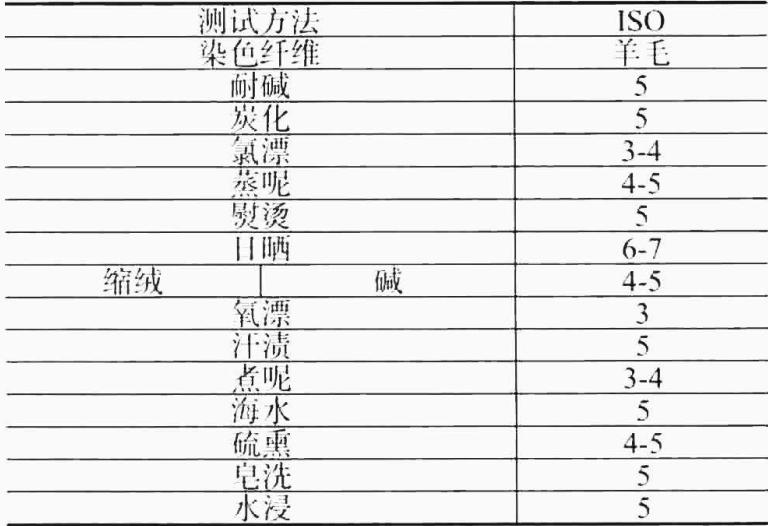 测试方法 ISO
染色纤维 羊毛
耐碱 5
炭化 5
氯漂 3-4
蒸呢 4-5
熨烫 5
日晒 6-7
缩绒 碱 4-5
氧漂 3
汗渍 5
煮呢 3-4
海水 5
硫熏 4-5
皂洗 5
水浸 5